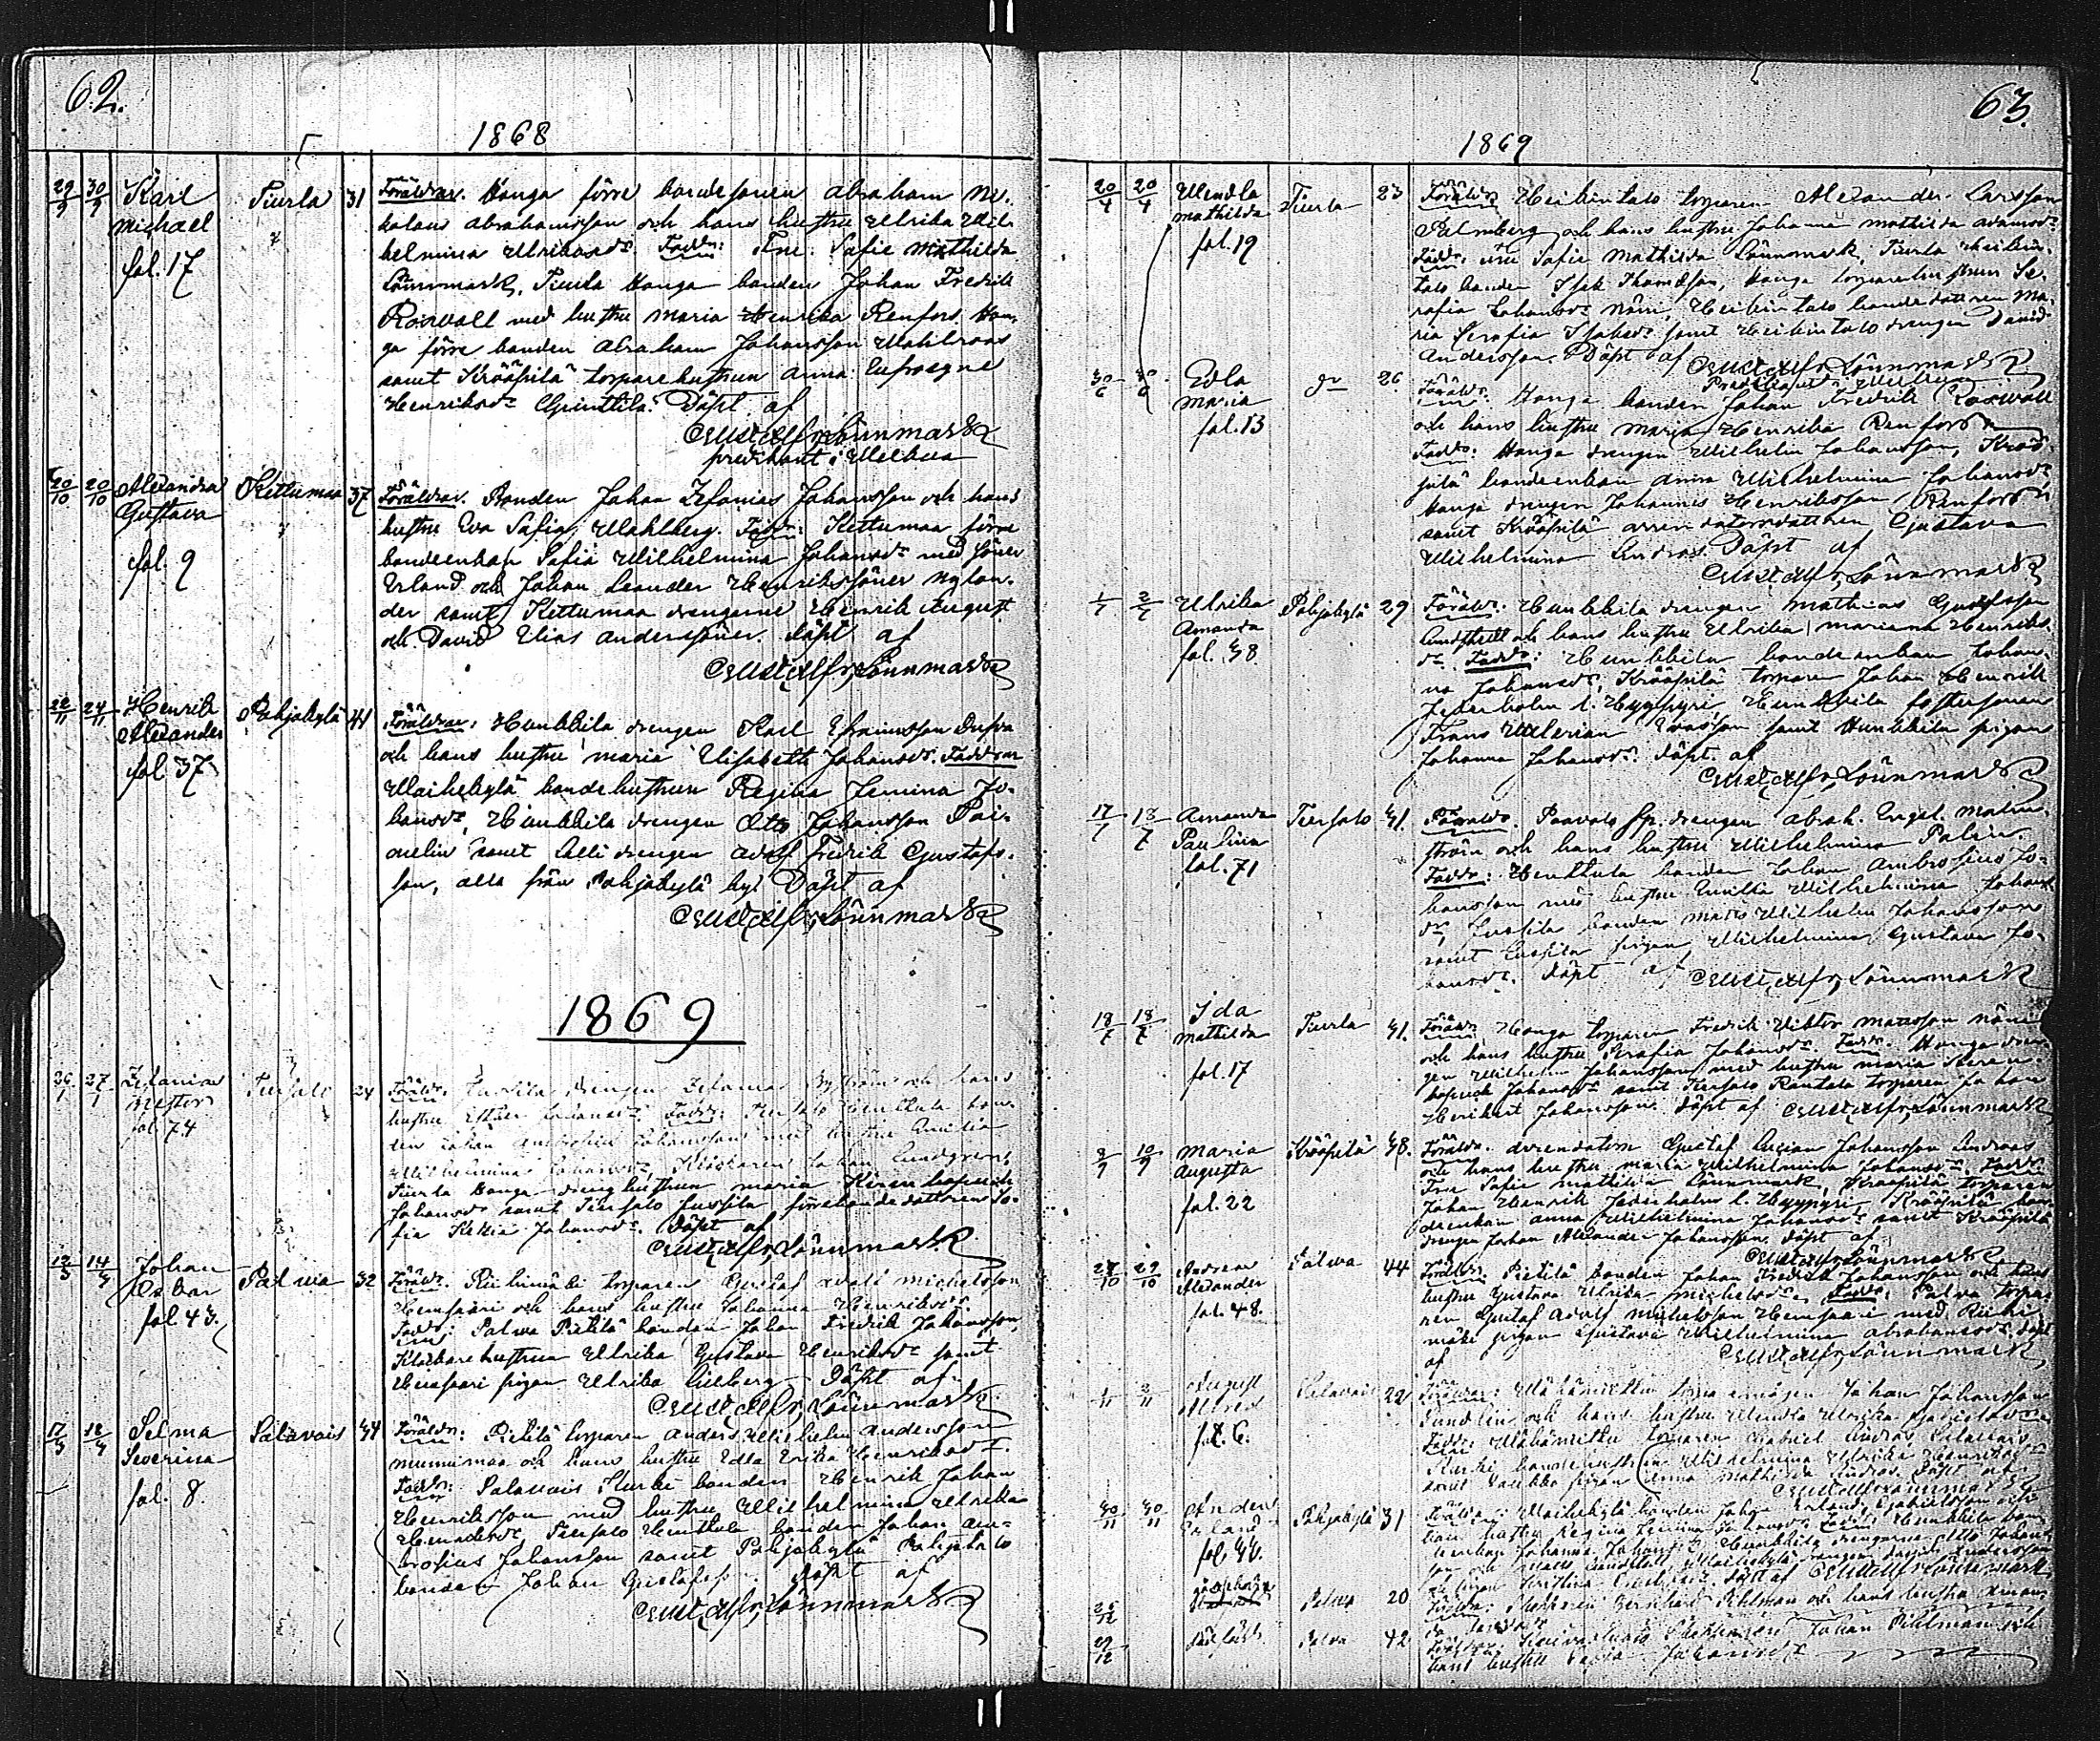 62.
1868
29/9 30/9 Karl Michael fol. 17 Tiurla 31 Föräldrar. Hanga förre bondesonen Abraham Ni-
kolaus Abrahamsson och hans hustru Ulrika Wil-
helmina Ulriksdr. Faddr: Fru Sofie Mathilda
Lönnmark, Tiurla Hanga bonden Johan Fredrik
Roswall med hustru Maria Henrika Renfors, Han-
ga förre bonden Abraham Johansson Wahlroos
samt Krööpilä torparehustrun Anna Eufrosyne
Henriksdr. Döpt af
Gust. Alfr. Lönnmark
predikant i Mellua
20/10 20/10 Alexandra Gustava fol. 9 Kettumaa 37 Föräldrar. Bonden Johan Zefanias Johansson och hans
hustru Eva Sofia Wahlberg. Faddr: Kettumaa förre
bondeenkan Sofia Wilhelmina Johansdr med söner
Erland och Johan Leander Henrikssöner Nylan-
der samt Kettumaa drengarne Henrik August
och David Elias Anderssöner. Döpt af
Gust. Alfr. Lönnmark
22/11 24/11 Henrik Alexander fol. 37 Pohjakylä 41 Föräldrar: Hunkkila drengen Karl Efraimsson Dufva
och hans hustru Maria Elisabeth Johansdr. Faddrar
Maikekylä bondehustrun Regina Jemina Jo-
hansdr, Hunkkila drengen Otto Johansson
samt Lalli drengen Adolf Fredrik Gustafs-
son, alla från Pohjakylä by. Döpt af
Gust. Alfr. Lönnmark
1869
26/1 27/1 Zefanias Nestor fol. 74 Tiursalo 24 Föräldr. drengen Zefanias och hans
hustru Faddr: Tiursalo Henttula bon-
den Johan Ambrosius Johansson med hustru Amilia
Wilhelmina Johansdr, Klockaren Johan Lundgren,
Tiurla Hanga dreng hustrun Maria Kerenhapuch
Johansdr samt Tiursalo Jussila förrebondedottren So-
fia Johansdr. Döpt af
Gust. Alfr. Lönnmark
12/3 14/3 Johan Oskar fol. 43. Palwa 32 Föräldr. Riihimäki torparen Gustaf Adolf Michelsson
Hemsaari och hans hustru Johanna Henriksdr.
Faddr: Palwa Pietilä bonden Johan Fredrik Johansson,
Klockarehustrun Ulrika Gustava Henriksdr samt
Hemsaari pigan Ulrika Lillberg. Döpt af
Gust. Alfr. Lönnmark
Selma Severina fol. 8. Salavais 44 Föräldr: Pietilä torparen Anders Wilhelm Andersson
Munnimaa och hans hustru Edla Erika Henriksdr.
Faddr: Salavais Kurki bonden Henrik Johan
Henriksson med hustru Wilhelmina Ulrika
Henriksdr, Tiursalo Henttula bonden Johan Am-
brosius Johansson samt Pohjakylä Pohjatalo
bonden Johan Gustafsson. Döpt af
Gust. Alfr. Lönnmark
63.
1869
20/4 20/4 Wendla Mathilda fol. 19 Tiurla 23 Föräldr. Heikintalo torparen Alexander Larsson
Palmberg och hans hustru Johanna Mathilda Adamsdr.
Faddr. Fru Sofie Mathilda Lönnmark, Tiurla Heikin-
talo bonden Isak Thomasson, Hanga torparehustrun Se-
rafia Johansdr Nömi, Heikintalo bondedottren Ma-
ria Serafia Isaksdr samt Heikintalo drengen David
Andersson. Döpt af Gust. Alfr. Lönnmark
Predikant i Mellua
30/6 30/6 Edla Maria fol. 13 do 26 Föräldr. Hanga bonden Johan Fredrik Roswall
och hans hustru Maria Henrika Renfors.
Faddr: Hanga drengen Wilhelm Johansson, Kröö-
pilä bondeenkan Anna Wilhelmina Johansdr,
Hanga drengen Johannes Henriksson Renfors
samt Krööpilä arrendatorsdottren Gustava
Wilhelmina Andros. Döpt af
Gust. Alfr. Lönnmark
1/7 2/7 Ulrika Amanda fol. 38 Pohjakylä 29 Föräldr. Hunkkila drengen Mathias Gustafsson
Lundstedt och hans hustru Ulrika Mariana Henriks-
dr. Faddr: Hunkkila bondeenkan Johan-
na Johansdr, Krööpilä torparen Johan Henrik
Zederholm l. Hyypyri, Hunkkila fostersonen
Frans Wilerian samt Hunkkila pigan
Johanna Johansdr. Döpt af
Gust. Alfr. Lönnmark
17/7 18/7 Amanda Paulina fol. 71 Tiursalo 41. Föräldr. Paavola drengen Abrah. Engel. Malm-
ström och hans hustru Wilhelmina Palin.
Faddr: Henttula bonden Johan Ambrosius Jo-
hansson med hustru Amilia Wilhelmina Johans-
dr, Jussila bonden Matts Wilhelm Johansson
samt pigan Wilhelmina Gustava Jo-
hansdr. Döpt af Gust. Alfr. Lönnmark
18/7 18/7 Ida Mathilda fol. 17 Tiurla 41. Föräldr. Hanga torparen Fredrik Viktor Mattsson Nömi
och hans hustru Serafia Johansdr. Faddr. Hanga dren-
gen Wilhelm Johansson med hustru Maria Keren-
hapuch Johansdr samt Tiursalo Rantala torparen Johan
Heribert Johansson. Döpt af Gust. Alfr. Lönnmark
8/9 10/9 Maria Augusta fol. 22 Krööpilä 48. Föräldr. Arrendatorn Gustaf Lucian Johansson Andros
och hans hustru Maria Wilhelmina Johansdr. Faddr.
Fru Sofie Mathilda Lönnmark, Krööpilä torparen
Johan Henrik Zederholm l. Hyypyri, Krööpilä bon-
deenkan Anna Wilhelmina Johansdr samt Krööpilä
drengen Johan Alexander Johansson. Döpt af
Gust. Alfr. Lönnmark
27/10 29/10 Andreas Alexander fol. 48. Palwa 44 Föräldr. Pietilä bonden Johan Fredrik Johansson och hans
hustru Gustava Ulrika Michelsdr. Faddr. Palwa torpa-
ren Gustaf Adolf Michelsson Hemsaari med Riihi-
mäki pigan Gustava Wilhelmina Abrahamsdr. Döpt
af Gust. Alfr. Lönnmark
August Alfred fol. 6. Salavais 22 Föräldrar: torparemågen Johan Johansson
Sundlin och hans hustru Wendla Ulrika Gabrielsdr.
Faddr: torparen Gabriel Andros Salavais
Kurki bondehustrun Wilhelmina Ulrika Henriksdr
samt pigan Anna Mathilda Andros. Döpt af
Gust. Alfr. Lönnmark
30/11 30/11 Anders Erland Pohjakylä 31 Föräldrar: Maikekylä bonden Johan Erland Gabrielsson och
hans hustru Regina Jemina Johansdr. Faddr: Hunkkila bon-
deenkan Johanna Johansdr, Hunkkila drengarne Otto Johans-
son och Lundstedt, Maikekylä drengen
och pigan Kristina Döpt af Gust. Alfr. Lönnmark
Palwa 20 Föräldr. Pihlman och hans hustru Aman-
da
29/12 Palwa 42 Föräldrar: Johan Pihlman och
hans hustru Johansdr